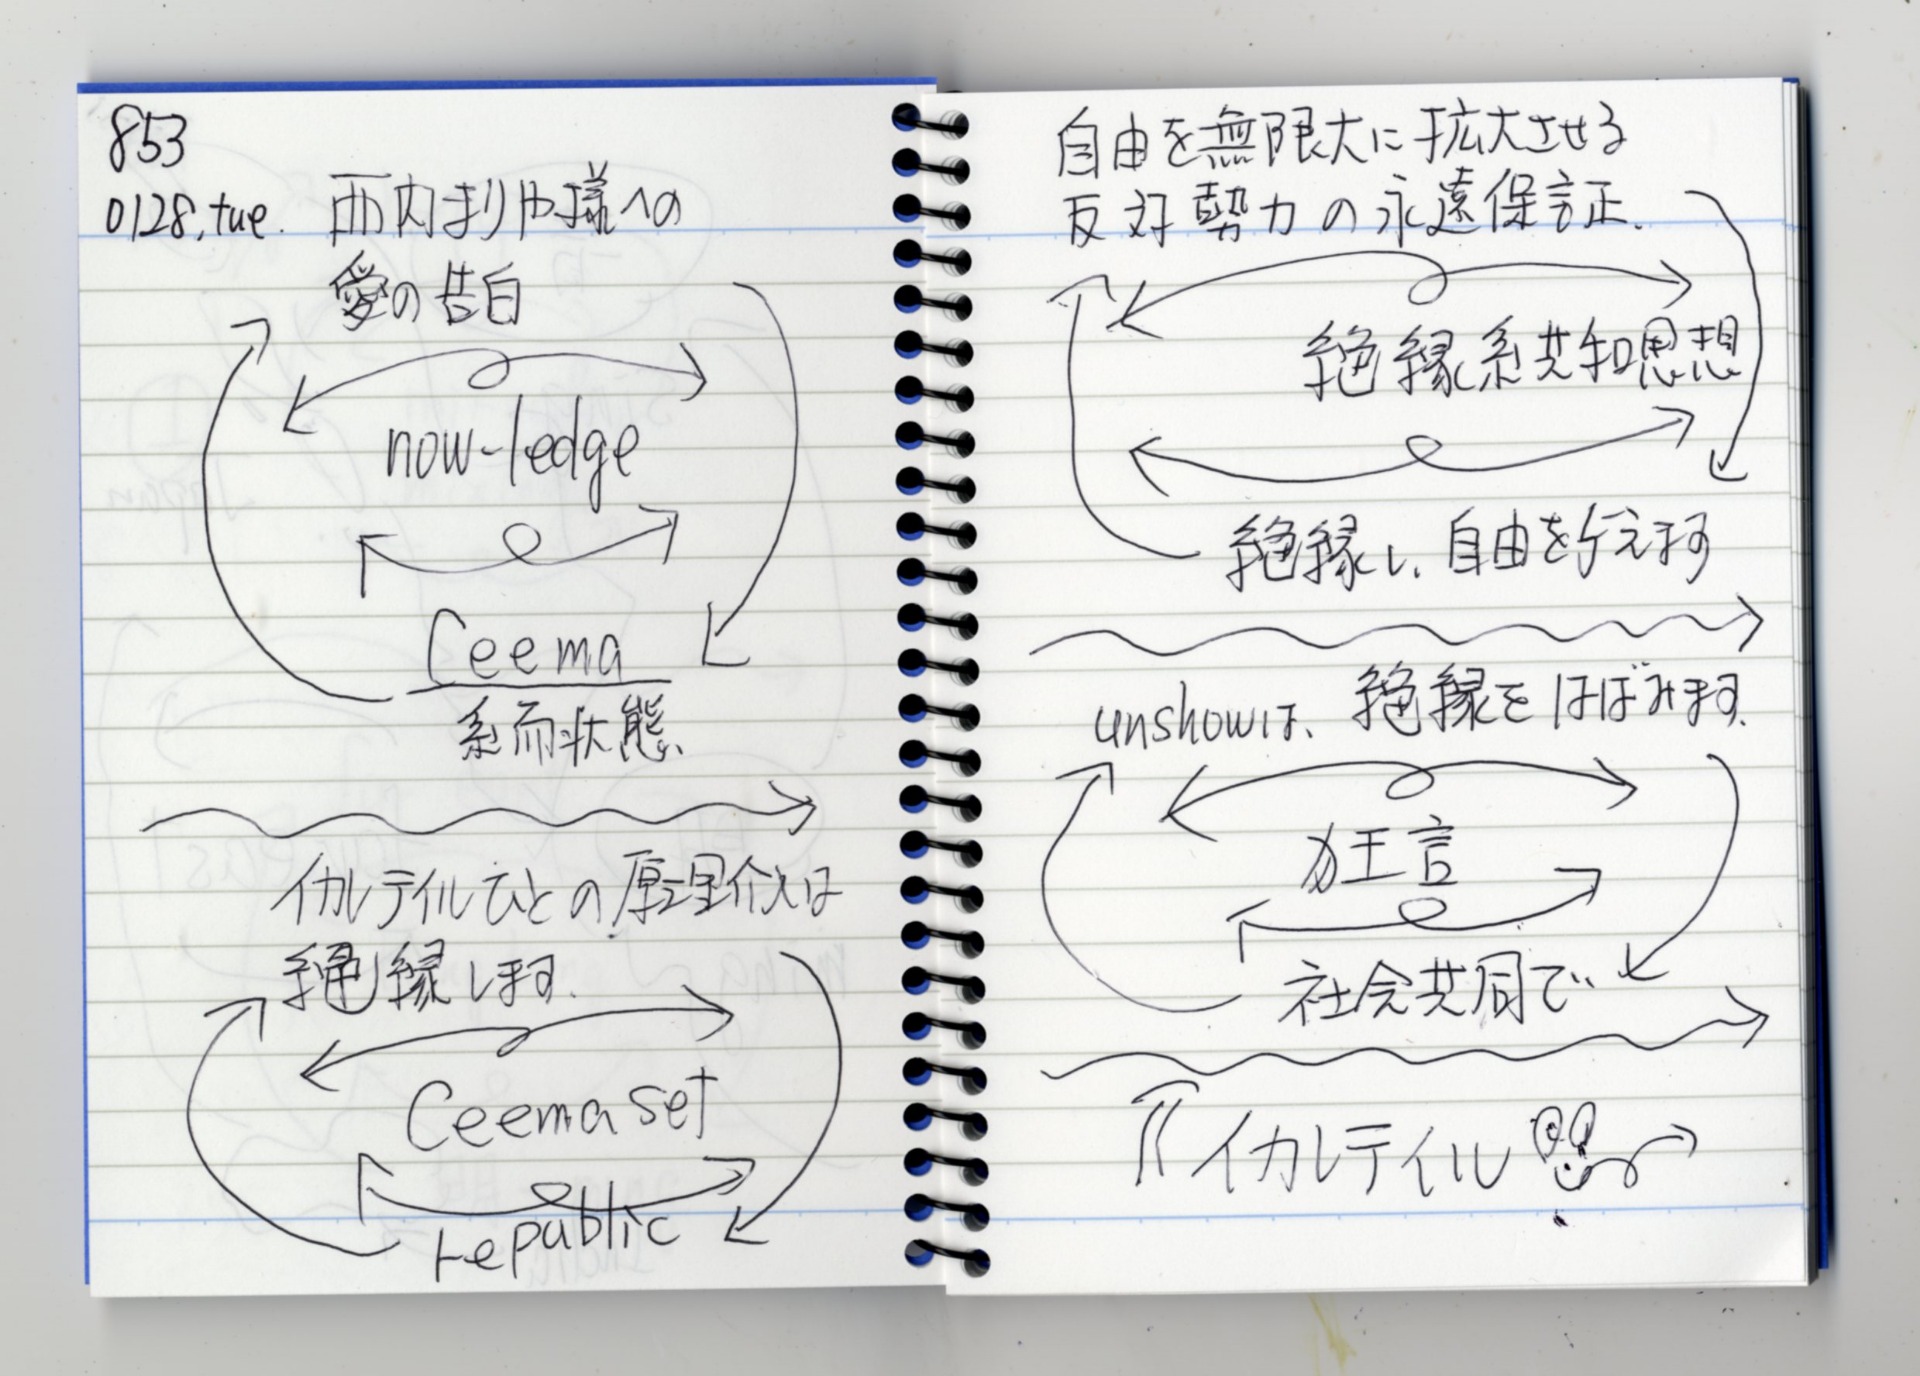 853
0128.tue. 西内まりや様への
愛の告白
now-ledge
Ceema
系而状態.
イカルテイルひとの原理介入は
絶縁します.
Ceema set
republic
自由を無限大に拡大させる
反対勢力の永遠保証.
絶縁系共和思想
絶縁し、自由を与えます
unshowは、絶縁をはばみます.
狂言
社会共同で
イカルテイル